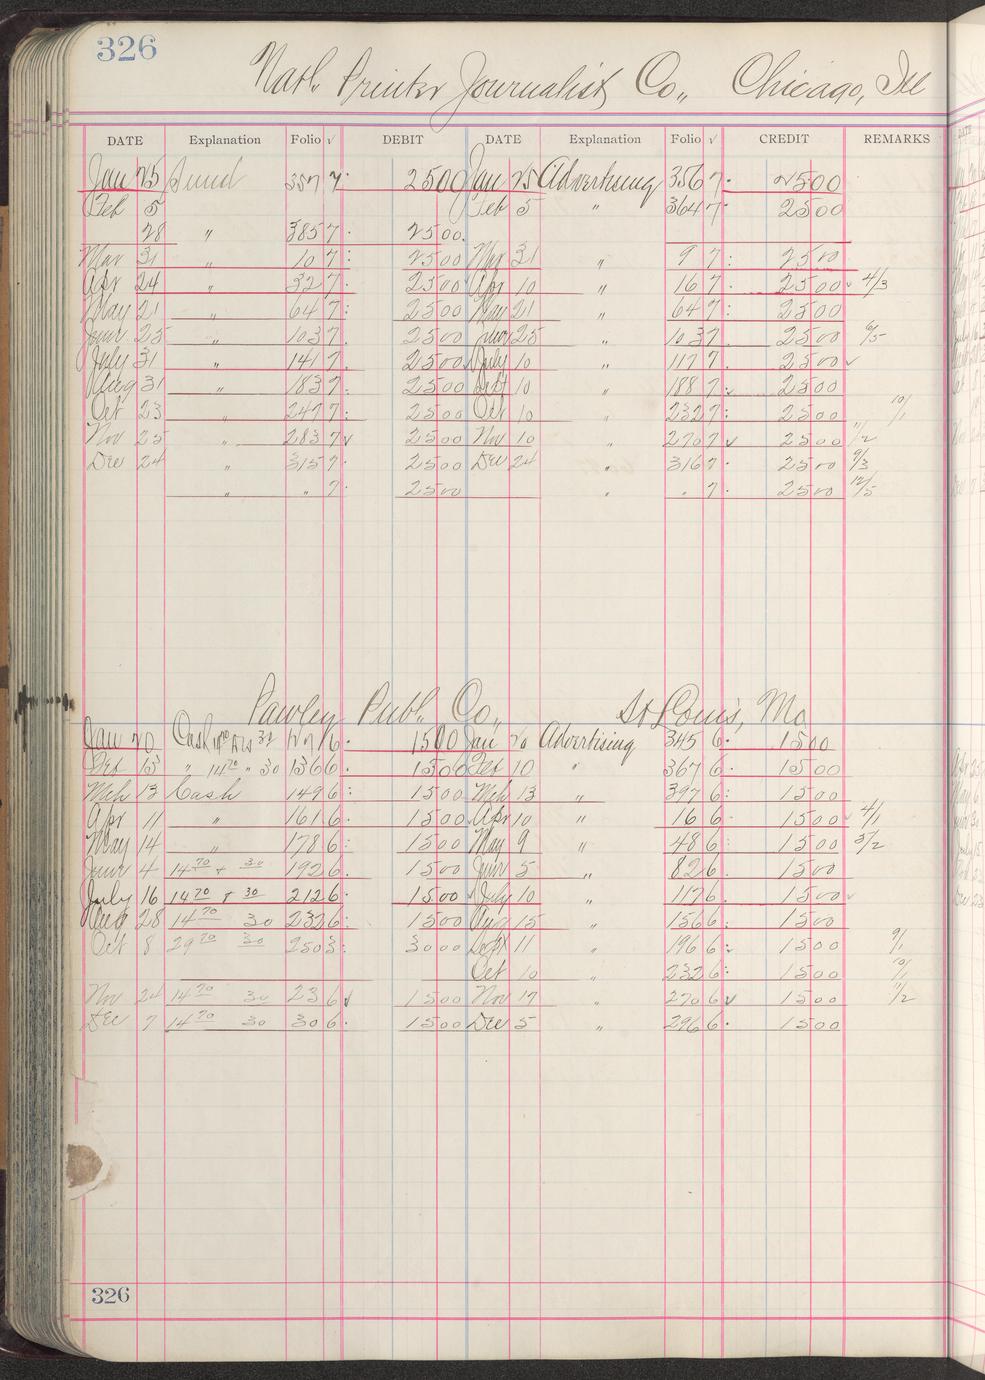 326
Natl. Printer Journalist Co., Chicago, Ill
DATE Explanation Folio √ DEBIT DATE Explanation Folio √ CREDIT REMARKS
Jan 25 357 7 2500 Jan 25 Advertising 356 7 2500
Feb 5 Feb 5 " 364 7 2500
28 " 385 7 2500
Mar 31 " 10 7 2500 Mar 31 " 9 7 2500
Apr 24 " 32 7 2500 Apr 10 " 16 7 2500 4/3
May 21 " 64 7 2500 May 21 " 64 7 2500
June 25 " 103 7 2500 June 25 " 103 7 2500 6/5
July 31 " 141 7 2500 July 10 " 117 7 2500
Aug 31 " 183 7 2500 Sept 10 " 188 7 2500
Oct 23 " 247 7 2500 Oct 10 " 232 7 2500 10/1
Nov 25 " 283 7 √ 2500 Nov 10 " 270 7 √ 2500 11/2
Dec 24 " 315 7 2500 Dec 24 " 316 7 2500 9/3
" " 7 2500 " " 7 2500 12/5
Pawley Publ. Co., St Louis, Mo
Jan 20 Cash 6 1500 Jan 20 Advertising 345 6 1500
Feb 13 " 14 70 " 30 136 6 1500 Feb 10 " 367 6 1500
Mch 13 Cash 149 6 1500 Mch 13 " 397 6 1500
Apr 11 " 161 6 1500 Apr 10 " 16 6 1500 4/1
May 14 " 178 6 1500 May 9 " 48 6 1500 5/2
June 4 14 70 + 30 192 6 1500 June 5 " 82 6 1500
July 16 14 70 + 30 212 6 1500 July 10 " 117 6 1500
Aug 28 14 70 30 232 6 1500 Aug 15 " 156 6 1500
Oct 8 29 70 30 250 3 3000 Sept 11 " 196 6 1500 9/1
Oct 10 " 232 6 1500 10/1
Nov 24 14 70 30 23 6 √ 1500 Nov 17 " 270 6 √ 1500 11/2
Dec 7 14 70 30 30 6 1500 Dec 5 " 296 6 1500
326